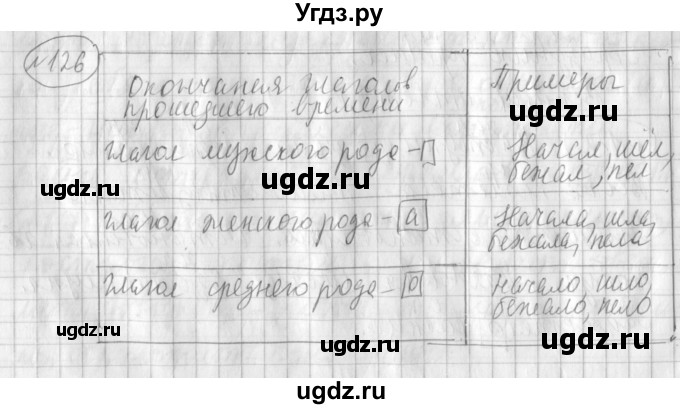 Угдз.ру
№126
Окончания глаголов
прошедшего времени
Примеры
ugdz.ru
ugdz.ru
глагол мужского рода -
Начал, шёл,
бежал, пел
ugdz.ru
ugdz.ru
глагол женского рода - а
Начала, шла,
бежала, пела
ugdz.ru
ugdz.ru
глагол среднего рода - о
начало, шло,
бежало, пело
ugdz.ru
ugdz.ru
ugdz.ru
ugdz.ru